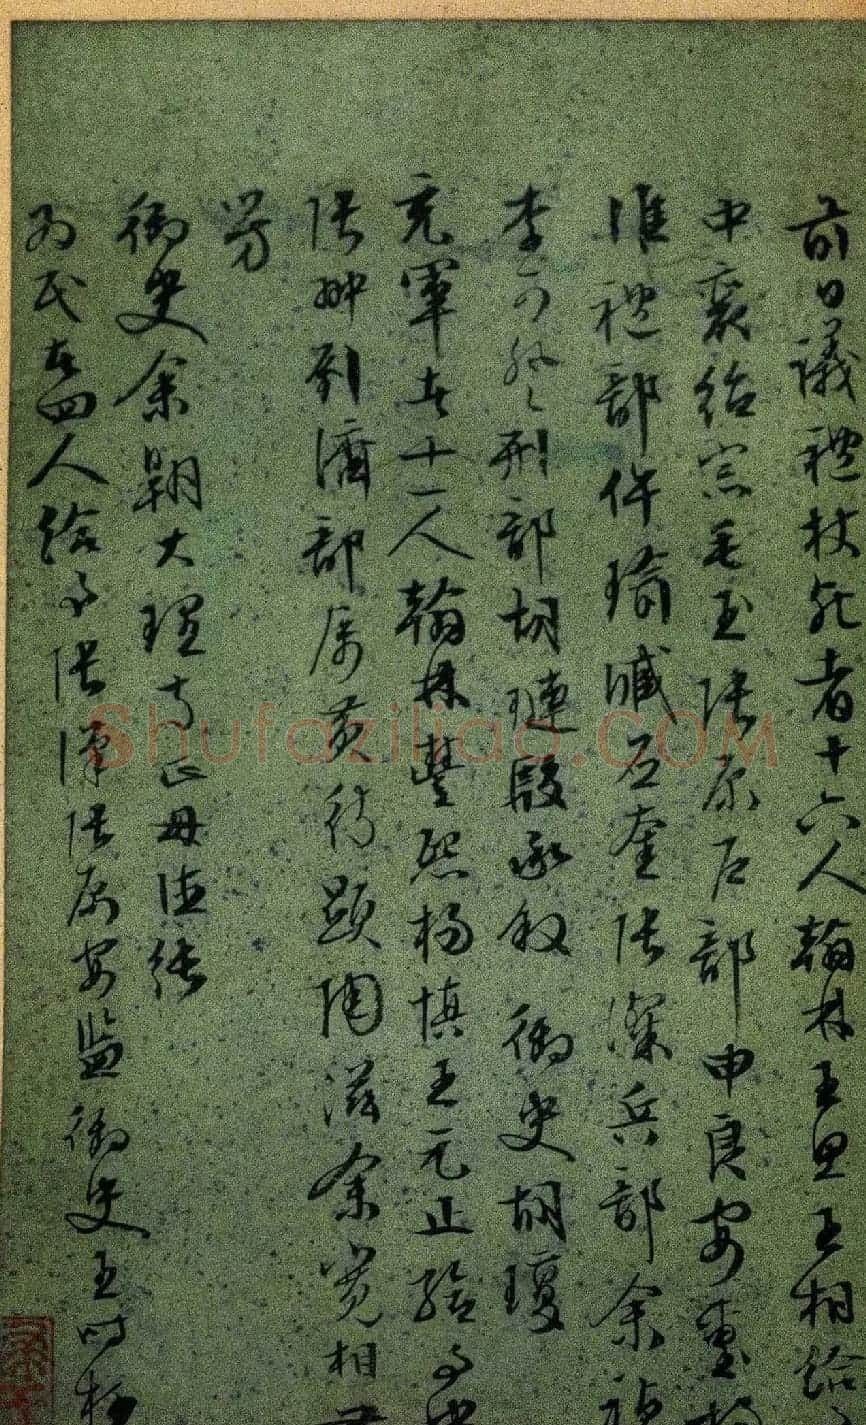 前日議禮杖死者十六人翰林王思王相給
中裴紹宗毛玉張原戶部申良安璽
淮禮部仵瑜臧應奎張濴兵部余禎
李可登刑部胡璉殷承敘御史胡瓊
充軍者十一人翰林豐熙楊慎王元正給事
張翀劉濟部屬黃待顯陶滋余寬相
芳
御史余翱大理寺正毋德純
為民者四人給事張漢張原安磐御史王時柯
Shufaziliao.COM